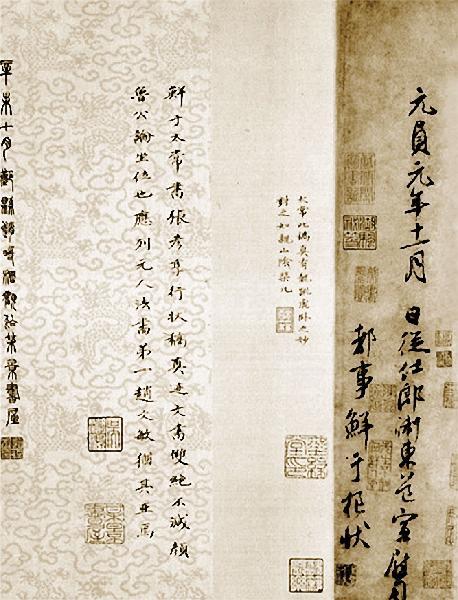 元貞元年十一月 日從仕郎浙東道宣慰司
都事鮮于樞狀
太常此稿真有龍跳虎臥之妙
對之如親山陰棐几
鮮于太常書張彥享行狀稿真迹文書雙絕不減顏
魯公論坐位也應列元人法書第一趙文敏猶其亞焉
辛未十月 觀 景書屋